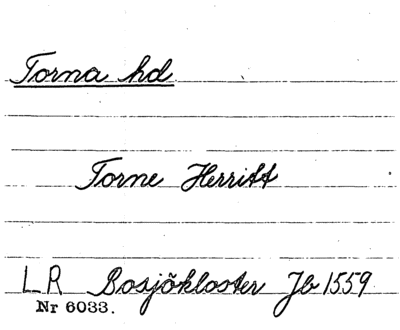 Torna hd
Torne Herritt
LR Bosjökloster Jb 1559
Nr 6033.